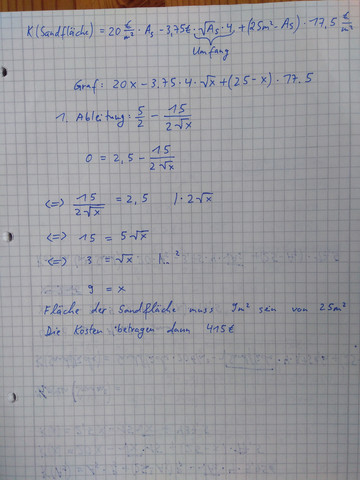 K(Sandfläche) = 20 €/m² · As - 3,75€ · √As · 4 + (25m² - As) · 17,5 €/m²
Umfang
Graf: 20x - 3.75 · 4 · √x + (25 - x) · 17.5
1. Ableitung: 5/2 - 15/2√x
0 = 2,5 - 15/2√x
<=> 15/2√x = 2,5 | · 2√x
<=> 15 = 5√x
<=> 3 = √x |²
9 = x
Fläche der Sandfläche muss 9m² sein von 25m²
Die Kosten betragen dann 415€